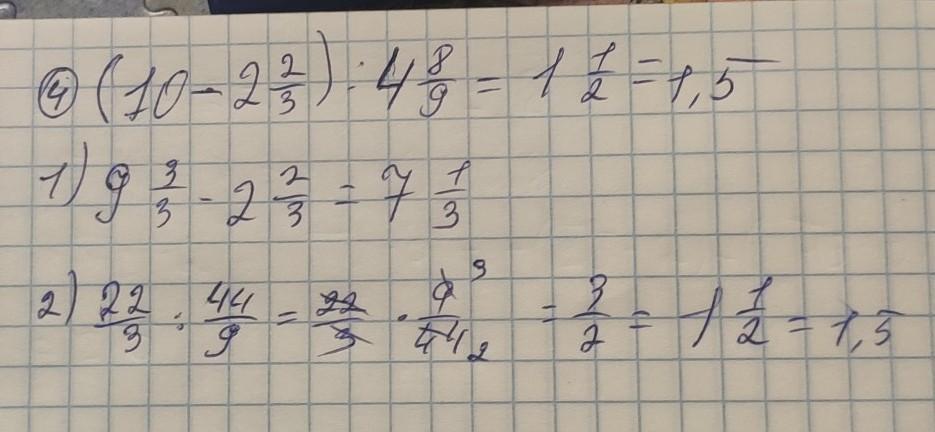 ④ (10 - 2 2/3) : 4 8/9 = 1 1/2 = 1,5
1) 9 3/3 - 2 2/3 = 7 1/3
2) 22/3 : 44/9 = 22/3 · 9 3/44 2 = 3/2 = 1 1/2 = 1,5